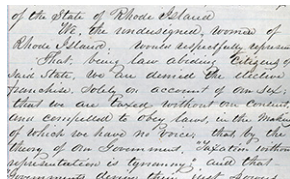 of the State of Rhode Island
We, the undersigned, Women of
Rhode Island, would respectfully represent
That, being law abiding Citizens of
said State, we are denied the elective
franchise, solely on account of our sex;
that we are taxed without our consent,
and compelled to obey laws, in the making
of which we have no voice; that by the
theory of our Government, "Taxation without
representation is tyranny," and that
Governments derive their just powers